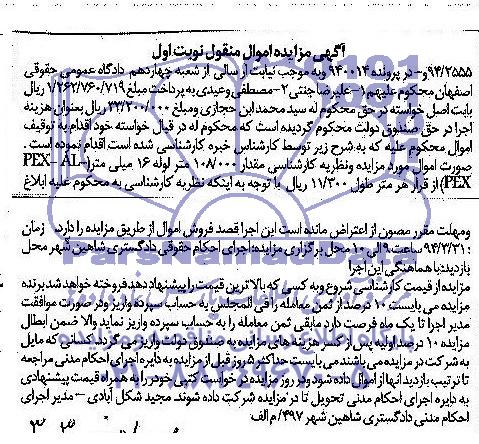 آگهی مزایده اموال منقول نوبت اول
۹۴/۲۵۵۵و- در پرونده ۹۳۰۰۱۴ و به موجب نیابت ارسالی از شعبه چهاردهم دادگاه عمومی حقوقی
اصفهان محکوم علیهم ۱- علیرضا جنتی ۲- مصطفی وعیدی به پرداخت مبلغ ۱/۲۶۲/۷۶۰/۷۱۹ ریال
بابت اصل خواسته در حق محکوم له سید محمد ابن حجازی و مبلغ ۳۳/۲۰۰/۰۰۰ ریال بعنوان هزینه
اجرا در حق صندوق دولت محکوم گردیده است که محکوم له در قبال خواسته خود اقدام به توقیف
اموال محکوم علیه که به شرح زیر توسط کارشناس خبره کارشناسی شده است اقدام نموده است.
صورت اموال مورد مزایده و نظریه کارشناسی مقدار ۱۰۸/۰۰۰ متر لوله ۱۶ میلی متر (PEX-AL-
PEX) از قرار هر متر طول ۱۱/۳۰۰ ریال با توجه به اینکه نظریه کارشناسی به محکوم علیه ابلاغ
ومهلت مقرر مصون از اعتراض مانده است این اجرا قصد فروش اموال از طریق مزایده را دارد. زمان
: ۹۴/۳/۳۱ ساعت ۹ الی ۱۰ محل برگزاری مزایده: اجرای احکام حقوقی دادگستری شاهین شهر محل
بازدید: با هماهنگی این اجرا
مزایده از قیمت کارشناسی شروع و به کسی که بالاترین قیمت را پیشنهاد دهد فروخته خواهد شد برنده
مزایده می بایست ۱۰ درصد از ثمن معامله را فی المجلس به حساب سپرده واریز و در صورت موافقت
مدیر اجرا تا یک ماه فرصت دارد مابقی ثمن معامله را به حساب سپرده واریز نماید والا ضمن ابطال
مزایده ۱۰ درصد اولیه پس از کسر هزینه های مزایده به صندوق دولت واریز می گردد. کسانی که مایل
به شرکت در مزایده می باشند می بایست حداکثر ۵ روز قبل از مزایده به دایره اجرای احکام مدنی مراجعه
تا ترتیب بازدید آنها از اموال داده شود و در روز مزایده درخواست کتبی خود را به همراه قیمت پیشنهادی
به دایره اجرای احکام مدنی تحویل تا در مزایده شرکت داده شوند. مجید شکل آبادی - مدیر اجرای
احکام مدنی دادگستری شاهین شهر ۴۹۷/م الف